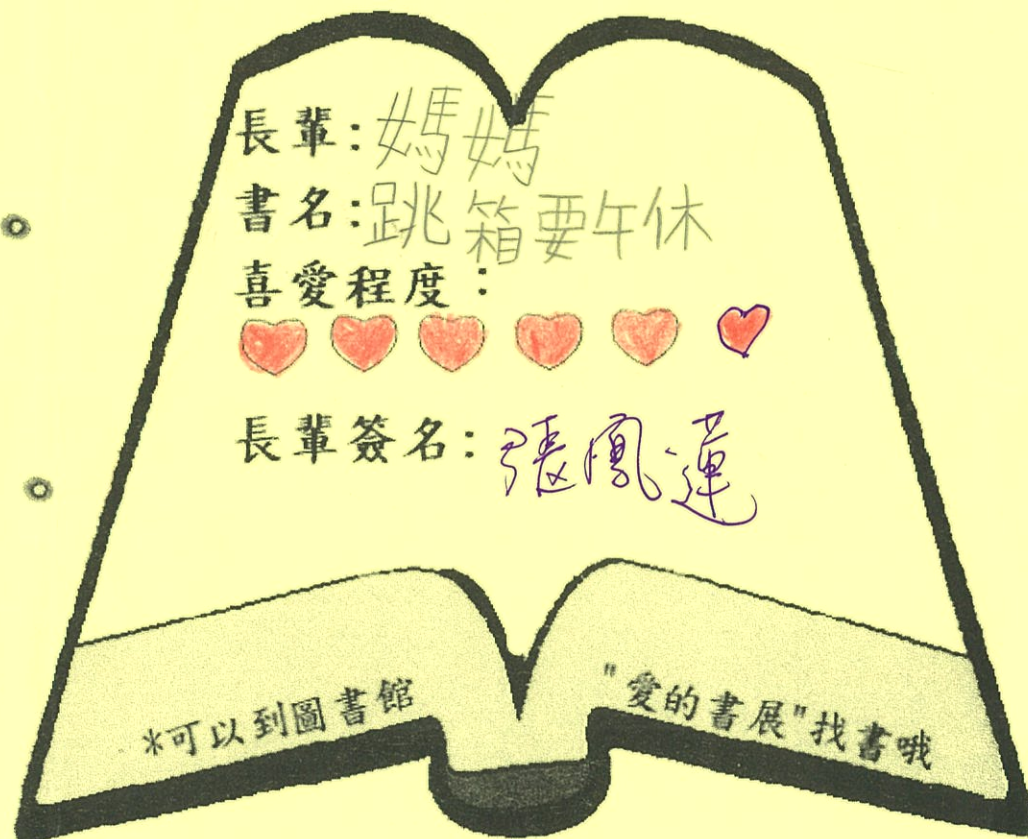 長輩：媽媽
書名：跳箱要午休
喜愛程度：
長輩簽名：張鳳蓮
*可以到圖書館
"愛的書展"找書哦